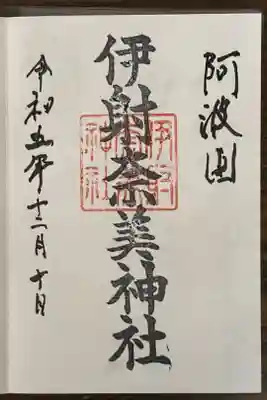 阿波国
伊射奈美神社
令和五年十二月十日